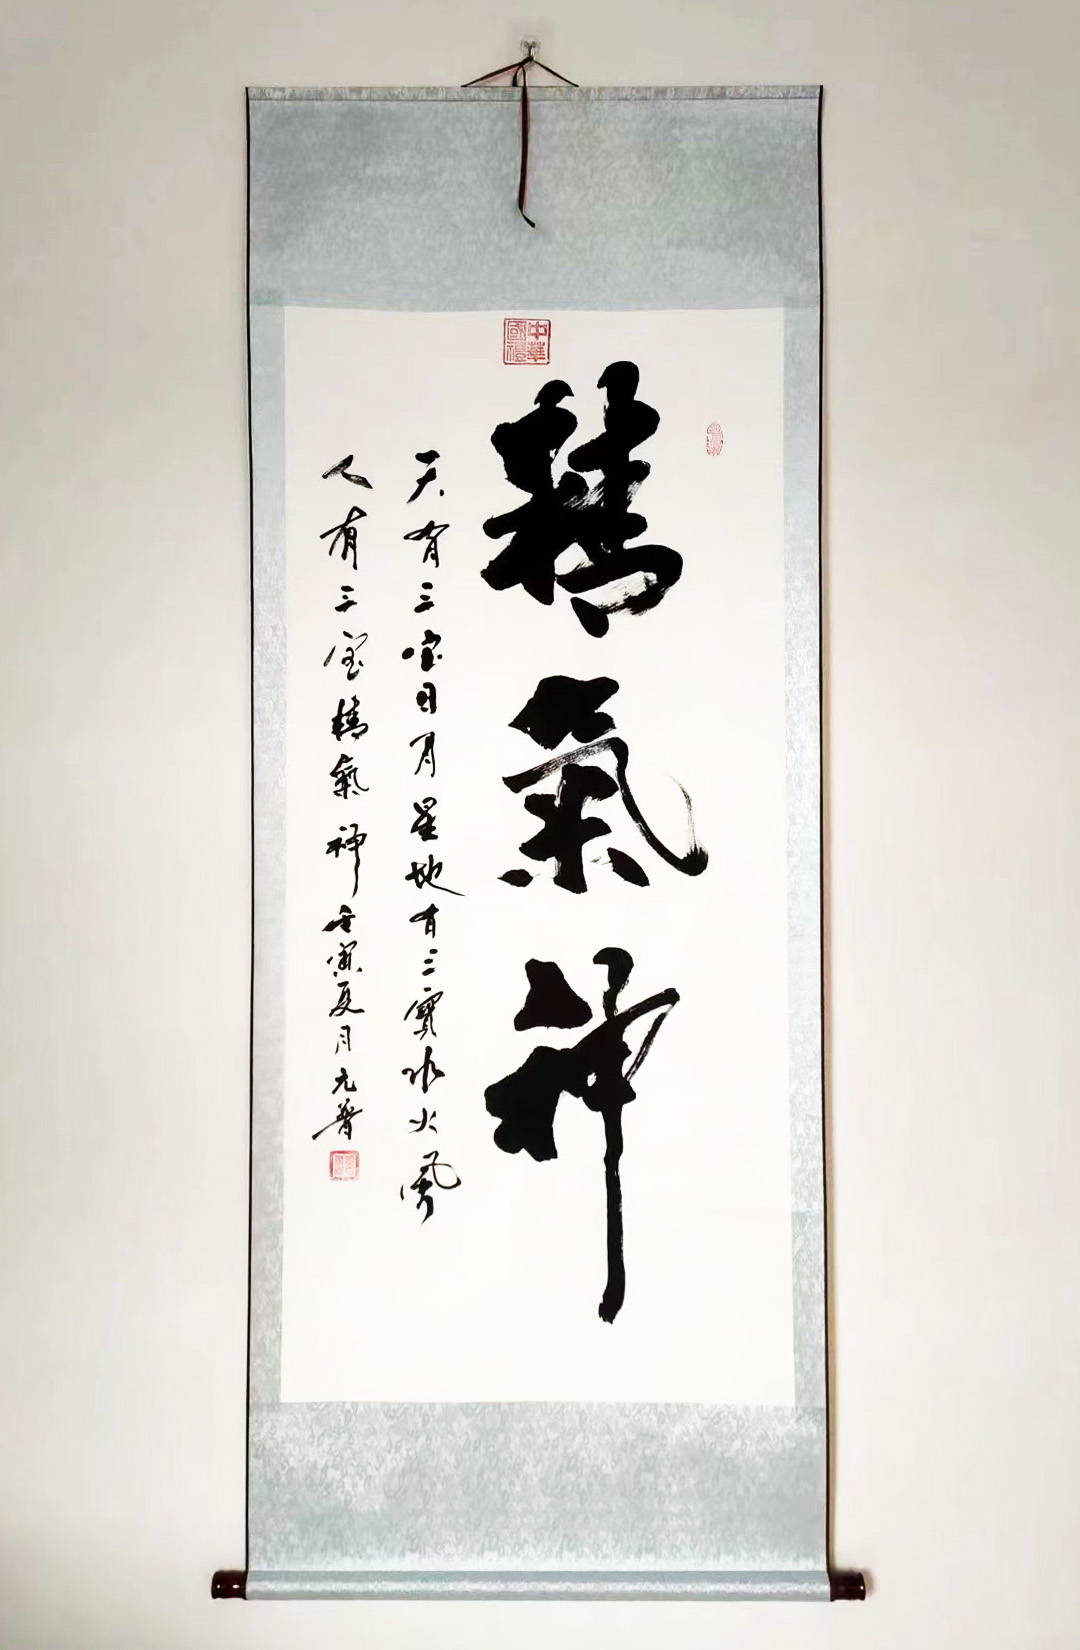 精氣神
天有三寶日月星地有三寶水火風
人有三宝精氣神壬寅夏月元普
中華國禮